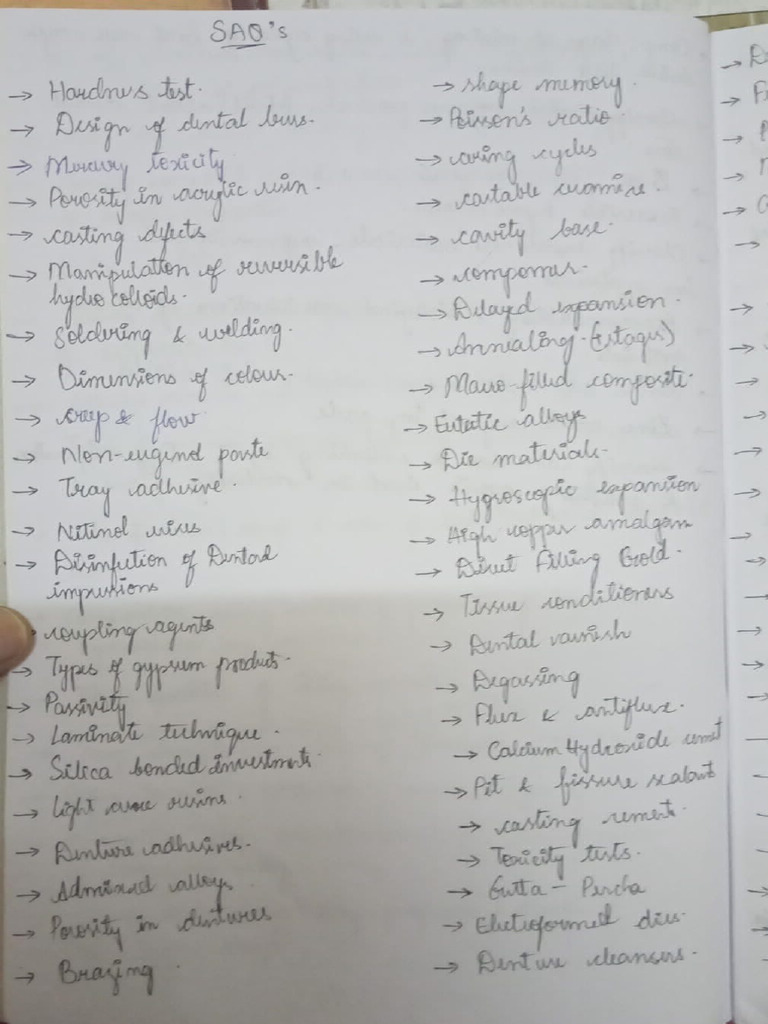 SAQ's
→ Hardness test.
→ Design of dental burs.
→ Mercury toxicity
→ Porosity in acrylic resin.
→ casting defects
→ Manipulation of reversible
hydro colloids.
→ Soldering & welding.
→ Dimensions of colour.
→ creep & flow
→ Non-eugenol paste
→ Tray adhesive.
→ Nitinol wires
→ Disinfection of Dental
impressions
coupling agents
→ Types of gypsum products.
→ Passivity
→ Laminate technique.
→ Silica bonded investments.
→ light cure resins.
→ Denture adhesives.
→ Admixed alloys
→ Porosity in dentures
→ Brazing
→ shape memory.
→ Poisson's ratio
→ curing cycles
→ castable ceramics.
→ cavity base.
→ compomer.
→ Delayed expansion.
→ Annealing. (stages)
→ Macro-filled composite.
→ Eutectic alloys
→ Die materials.
→ Hygroscopic expansion
→ High copper amalgam
→ Direct filling Gold.
→ Tissue conditioners
→ Dental varnish
→ Degassing
→ Flux & antiflux.
→ Calcium Hydroxide cement
→ Pit & fissure sealant
→ casting cements.
→ Toxicity tests.
→ Gutta-Percha
→ Electroformed dies.
→ Denture cleansers.